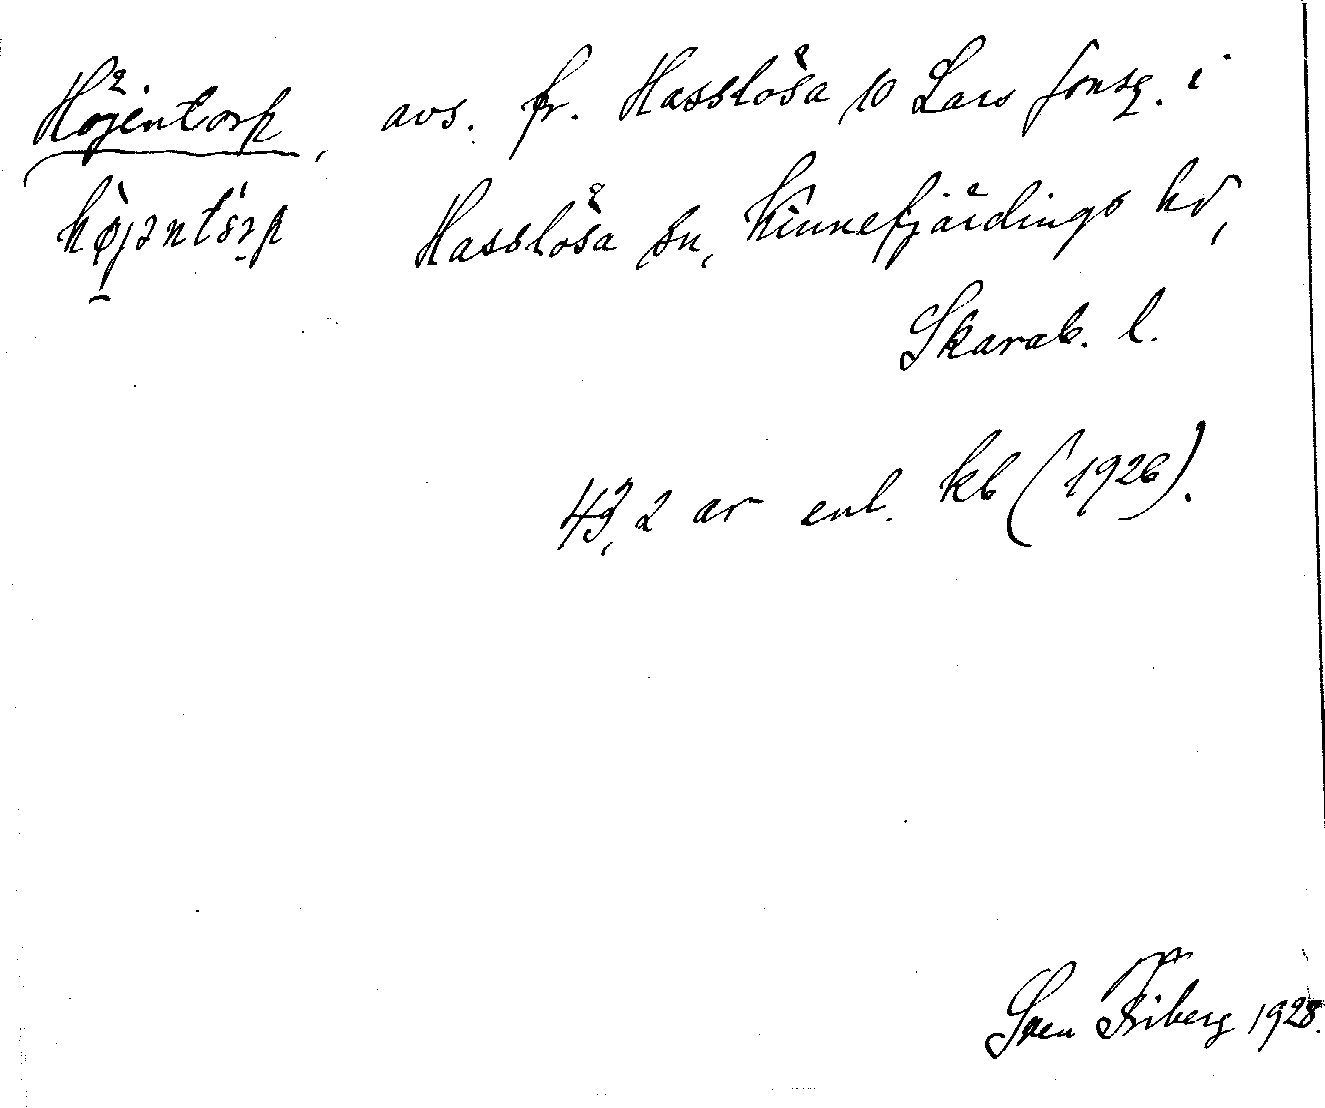 Höjentorp, avs. fr. Hasslösa 10 Lars Jonsg. i
Hasslösa sn, Kinnefjärdings hd,
Skarab. l.
43,2 ar enl. kb (1926).
Sven Friberg 1928.